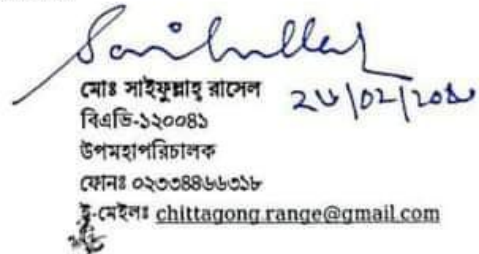 মোঃ সাইফুল্লাহ্ রাসেল
বিএভি-১২০০৪১
উপমহাপরিচালক
ফোনঃ ০২৩৩৪৪৬৬৩১৮
ই-মেইলঃ chittagong.range@gmail.com